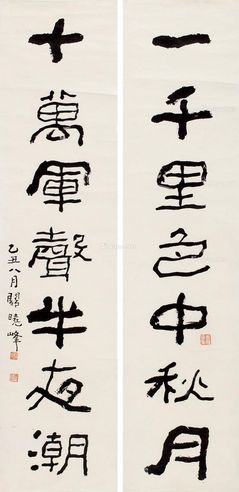 一千里色中秋月
十萬軍聲半夜潮
乙丑八月關曉峰